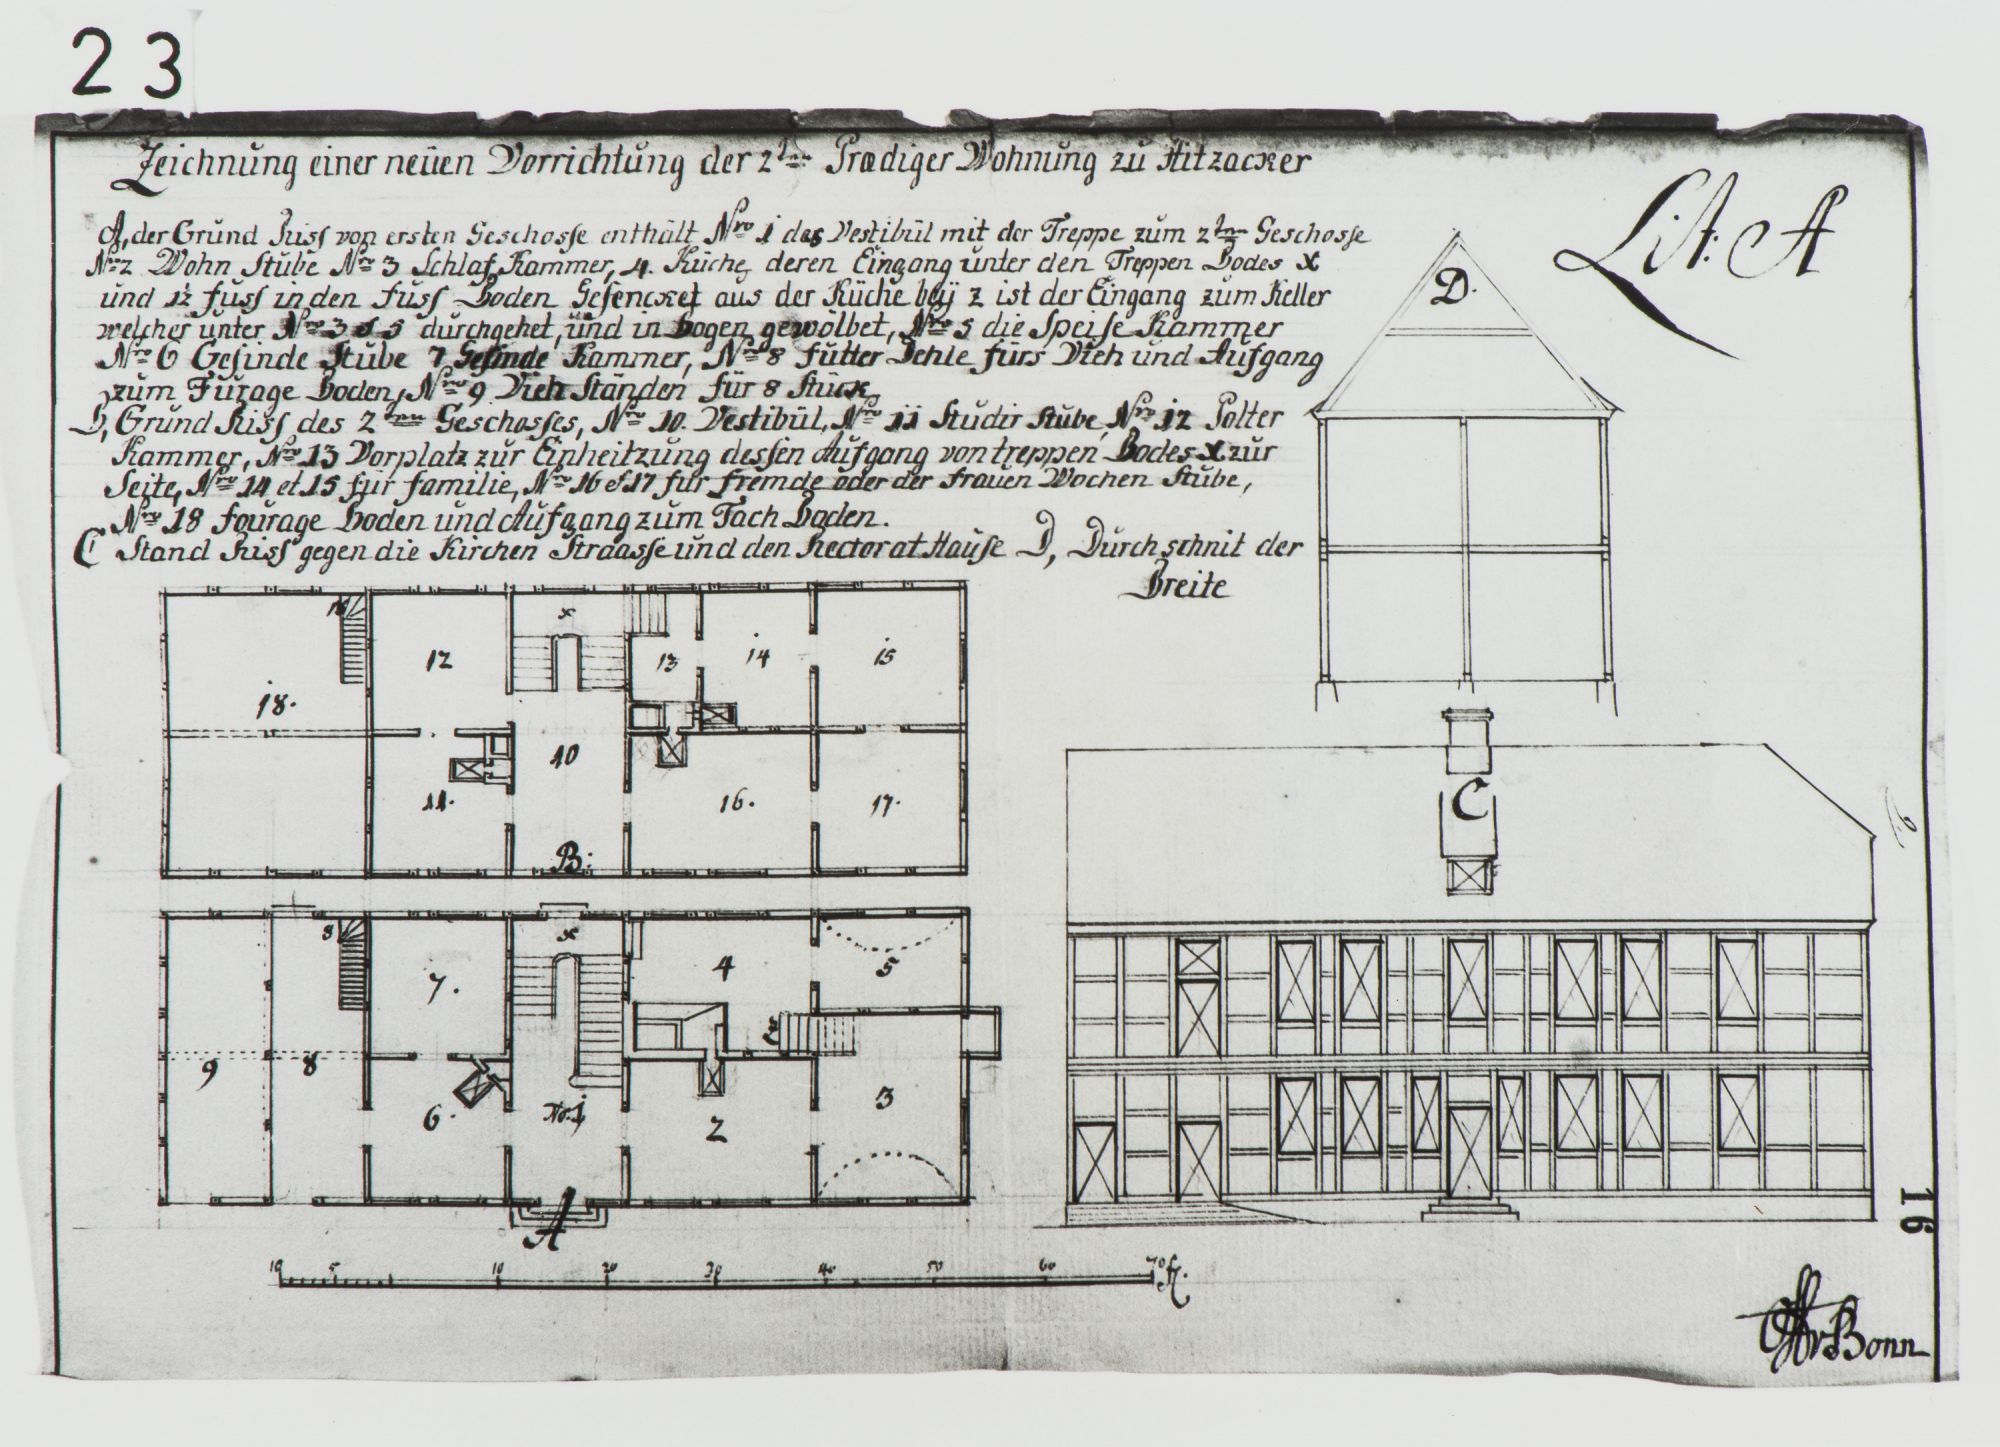 23
Zeichnung einer neüen Vorrichtung der 2ten Prædiger Wohnung zu Hitzacker
Lit: A
A, der Grund Riss von ersten Geschosse enthält Nro 1 das Vestibül mit der Treppe zum 2ten Geschosse
Nro 2 Wohn Stube Nro 3 Schlaf Kammer, 4. Küche, deren Eingang unter den Treppen Bodes x
und 1½ fuss in den fuss Boden Gesencket aus der Küche beÿ z ist der Eingang zum Keller
welcher unter Nro 3 et 5 durchgehet, und in bogen gewölbet, Nro 5 die Speise Kammer
Nro 6 Gesinde Stube 7 Gesinde Kammer, Nro 8 futter Dehle fürs Vieh und Aufgang
zum Furage Boden, Nro 9 Vieh Ständen für 8 Stück
B, Grund Riss des 2ten Geschosses, Nro 10. Vestibül, Nro 11 Studir Stube, Nro 12 Polter
Kammer, Nro 13 Vorplatz zür Einheitzung dessen Aufgang von treppen Bodes x zur
Seite, Nro 14 et 15 für familie, Nro 16 et 17 für fremde oder der frauen Wochen Stube,
Nro 18 fourage Boden und Aufgang zum Tach Boden.
C Stand Riss gegen die Kirchen Straasse und den Rectorat Hause D, Durchschnit der
Breite
D.
18 12 x 13 14 15
18.
10
11. 16. 17.
B.
C
8 x 4 5
7.
z
9 8 6. No. 1 2 3
A
10 5 10 20 30 40 50 60 70 ft.
16
Bonn